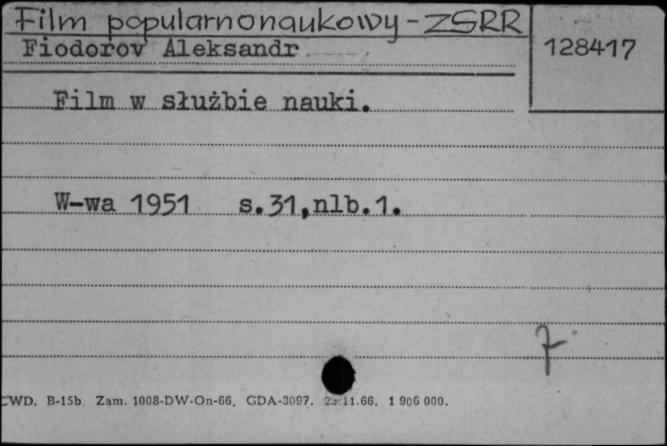 Film popularnonaukowy - ZSRR
Fiodorov Aleksandr
128417
Film w służbie nauki.
W-wa 1951 s.31,nlb.1.
CWD. B-15b. Zam. 1008-DW-On-66. GDA-3097. 11.66. 1 906 000.